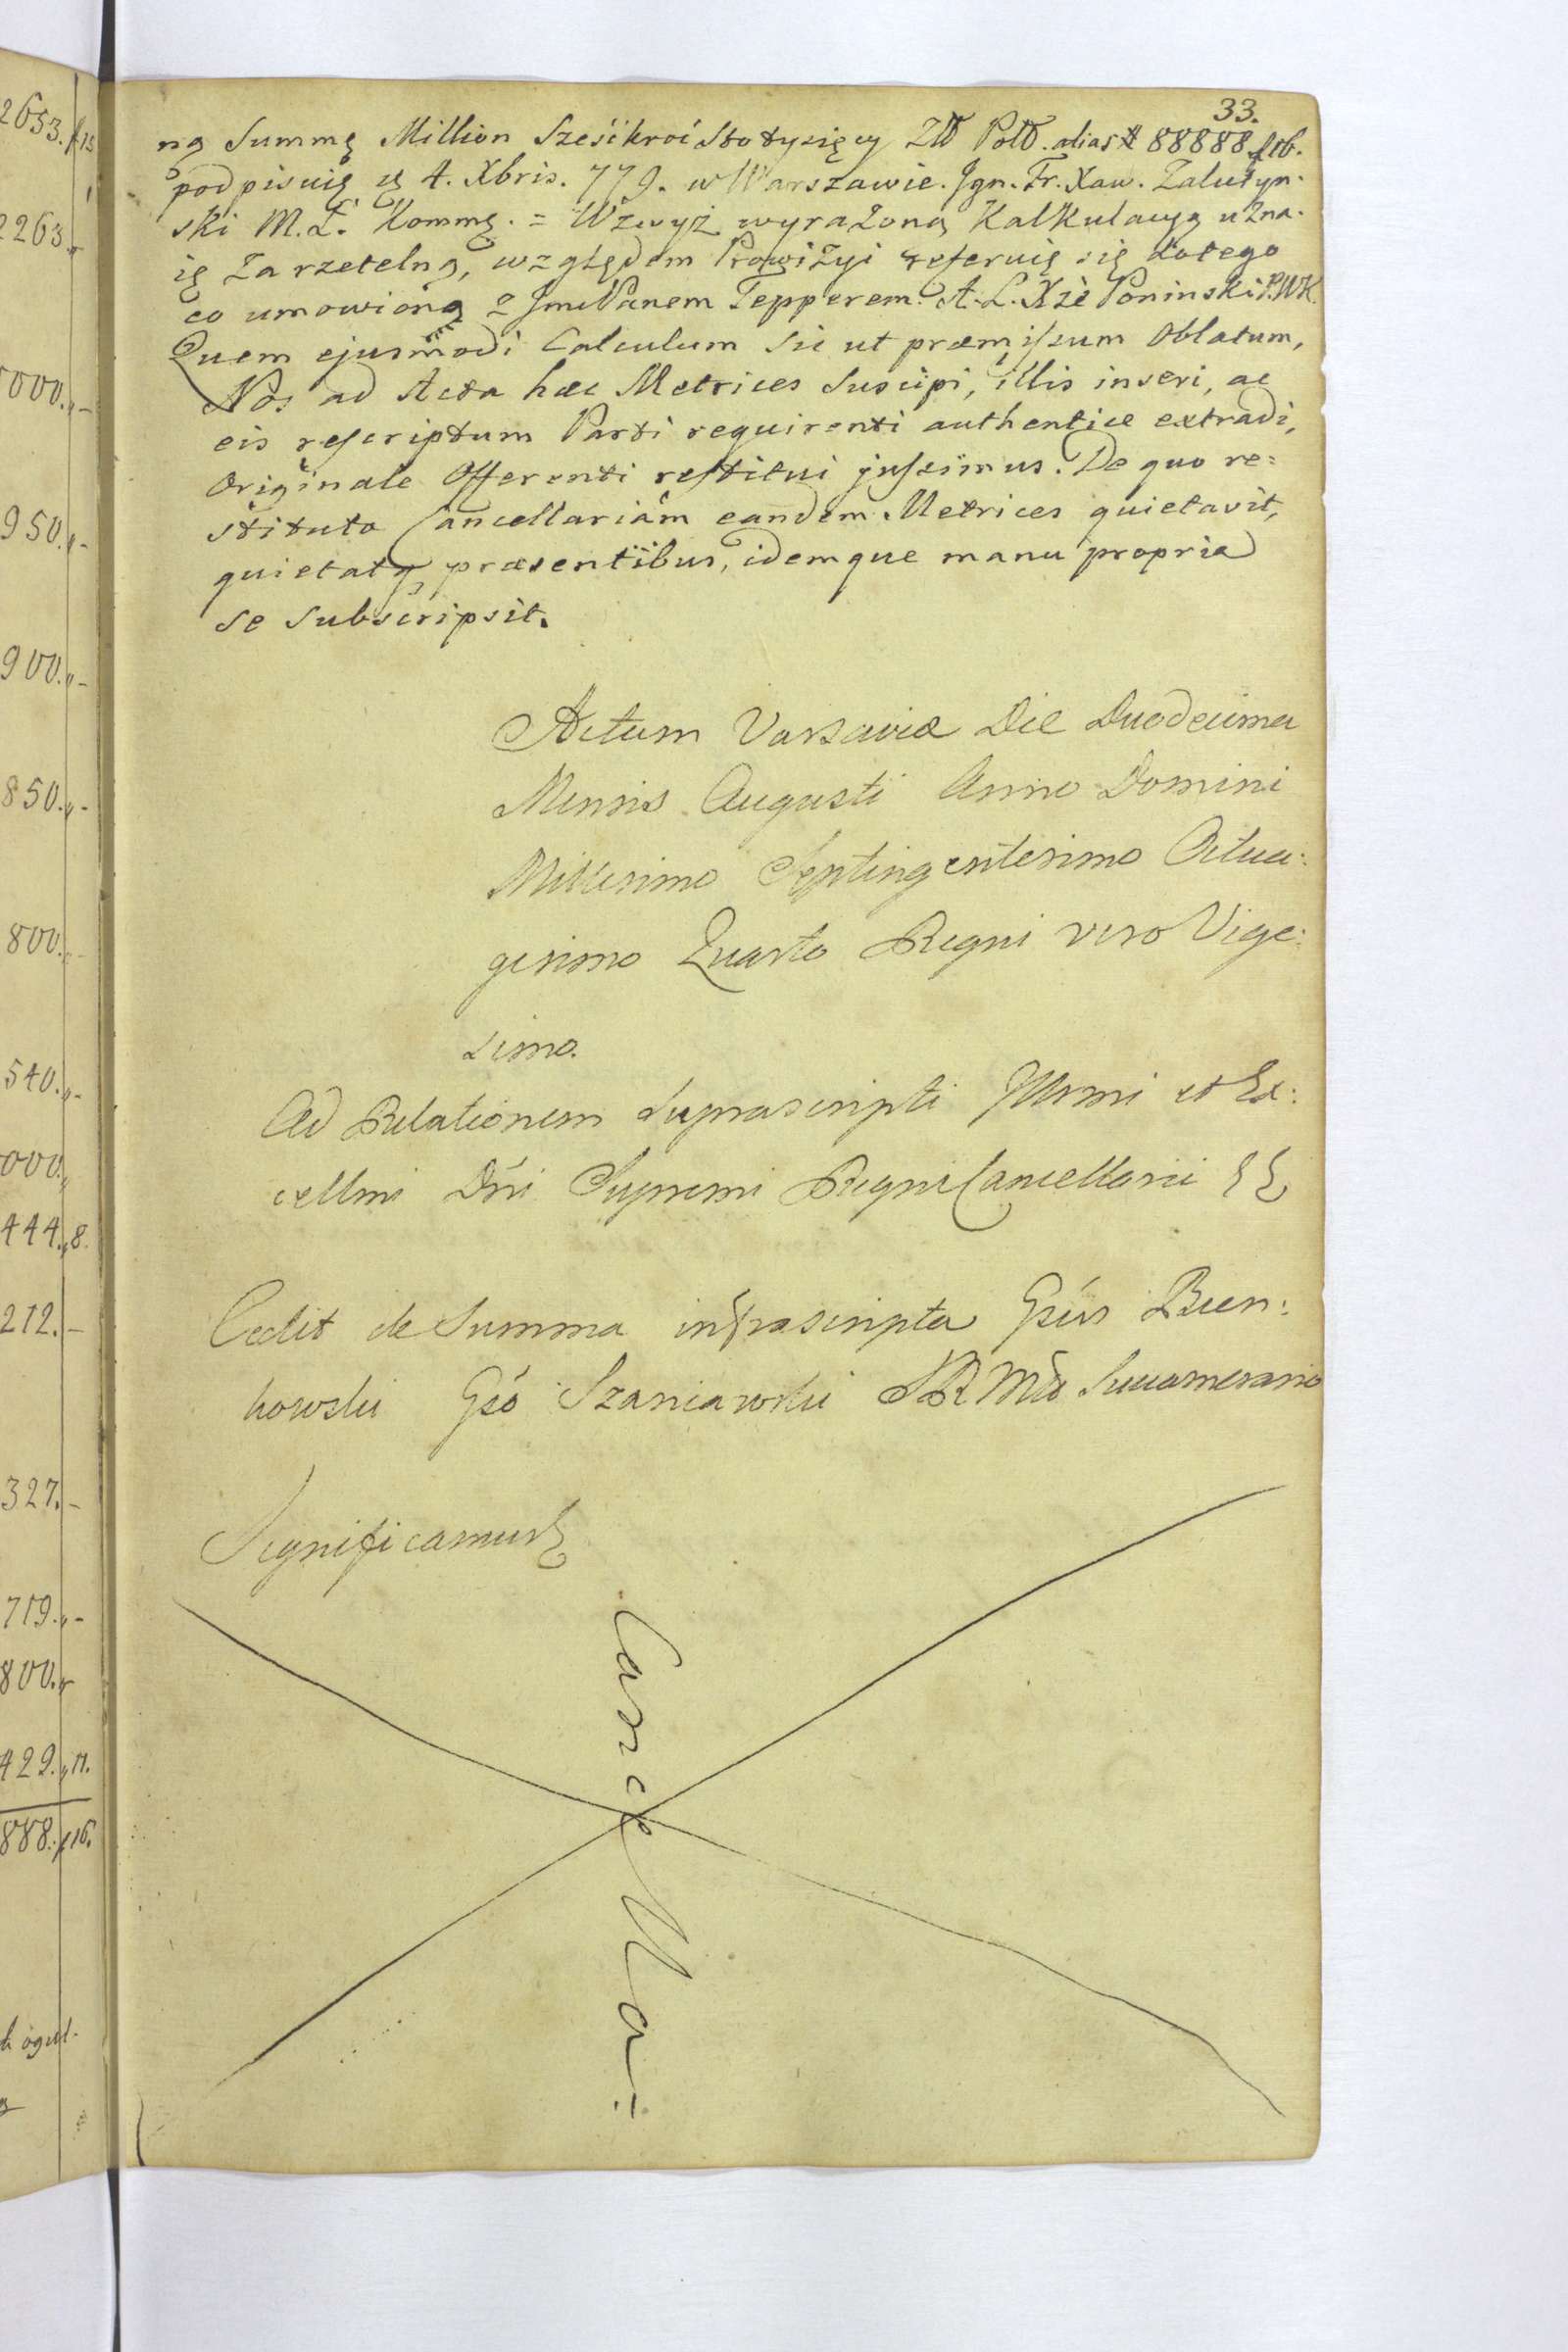 33.
ną Summę Million Sześćkroć Sto tysięcy Złł Poll. alias # 88888 f 16.
podpisuię się 4. Xbris. 779. w Warszawie. Jgn. Fr. Xaw. Zalutyn-
ski M. L. Kommę. = Wżwyż wyrażoną Kalkulacyą uzna-
ię za rzetelną, względem Prowizyi referuię się do tego
co umowioną z Jmc Panem Tepperem. A. L. Xżè Poninski P.W.K.
Quem ejusmodi Calculum sic ut præmissum Oblatum,
Nos ad Acta hæc Metrices Suscipi, illis inseri, ac
eis rescriptum Parti requirenti authentice extradi,
Originale Offerenti restitui jussimus. De quo re=
stituto Cancellariam eandem Metrices quietavit,
quietatq, præsentibus, idemque manu propria
se Subscripsit.
Actum Varsaviæ Die Duodecima
Mensis Augusti Anno Domini
Millesimo Septingentesimo Octua:
gesimo Quarto Regni vero Vige:
simo.
Ad Relationem Suprascripti Jllrmi et Ex:
cellmi Dni Supremi Regni Cancellarii
Cedit de Summa infrascripta Gsus Bien:
kowski Gso Szaniawski SRMtis Succamerario
Significamus
Cancella:
2653. f 15
2263.
000. -
950. -
900. -
850. -
800.
540. -
000.
444. 8.
212. -
327. -
719. -
800.
429. 11.
888. f 16.